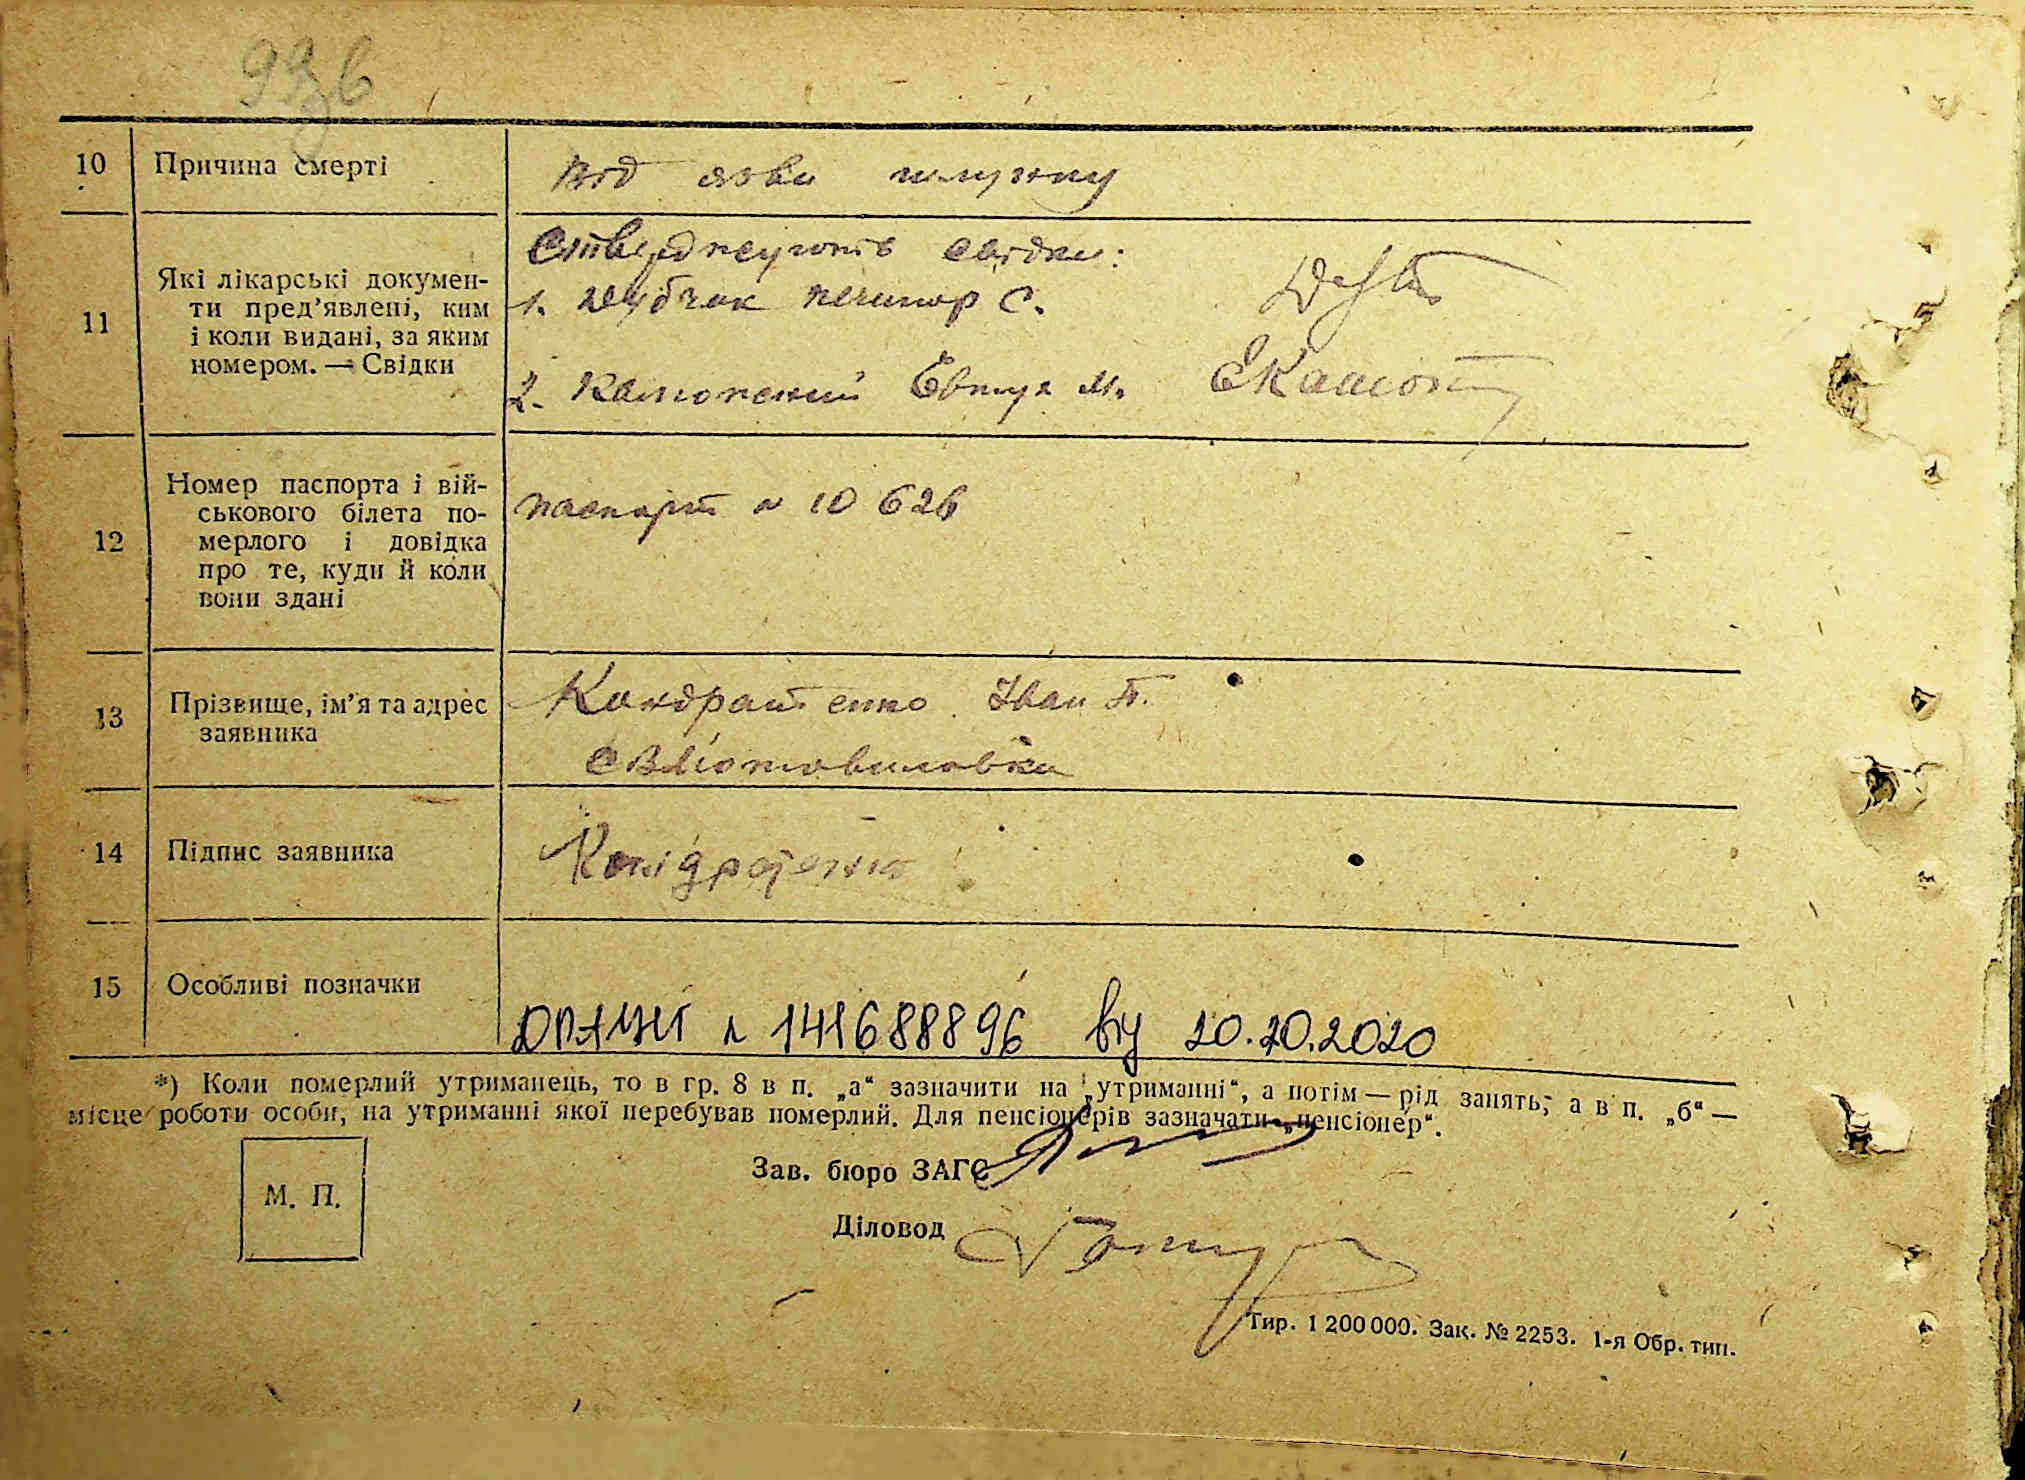 10 Причина смерті
від язви шлунку
11 Які лікарські докумен-
ти пред’явлені, ким
і коли видані, за яким
номером. — Свідки
Стверджують свідки:
1. С.
2. Євтух М.
12 Номер паспорта і вій-
ськового білета по-
мерлого і довідка
про те, куди й коли
вони здані
паспорт № 10626
13 Прізвище, ім’я та адрес
заявника
Кондратенко Іван П.
с Мотовиловка
14 Підпис заявника
Кондратенко
15 Особливі позначки
№ 141688896 від 20.10.2020
*) Коли померлий утриманець, то в гр. 8 в п. „а“ зазначити на „утриманні“, а потім — рід занять; а в п. „б“ —
місце роботи особи, на утриманні якої перебував померлий. Для пенсіонерів зазначати „пенсіонер“.
М. П.
Зав. бюро ЗАГС
Діловод
Тир. 1 200 000. Зак. № 2253. 1-я Обр. тип.